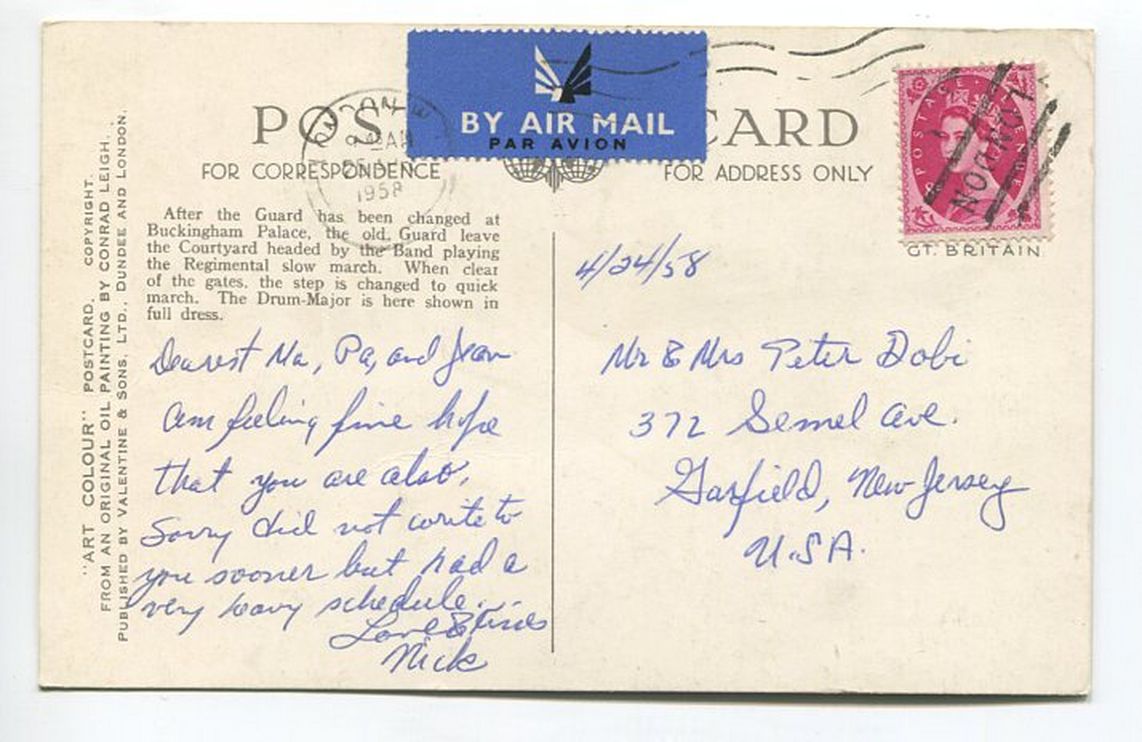 POST CARD
BY AIR MAIL
PAR AVION
FOR CORRESPONDENCE
FOR ADDRESS ONLY
LONDON
1958
POSTAGE REVENUE
8
LONDON
GT. BRITAIN
"ART COLOUR" POSTCARD. COPYRIGHT.
FROM AN ORIGINAL OIL PAINTING BY CONRAD LEIGH.
PUBLISHED BY VALENTINE & SONS, LTD., DUNDEE AND LONDON.
After the Guard has been changed at
Buckingham Palace, the old Guard leave
the Courtyard headed by the Band playing
the Regimental slow march. When clear
of the gates, the step is changed to quick
march. The Drum-Major is here shown in
full dress.
Dearest Ma, Pa, and Jean
am feeling fine hope
that you are also.
Sorry did not write to
you sooner but had a
very heavy schedule.
Love &
Nick
4/24/58
Mr & Mrs Peter Dobi
372 Semel Ave.
Garfield, New Jersey
U.S.A.